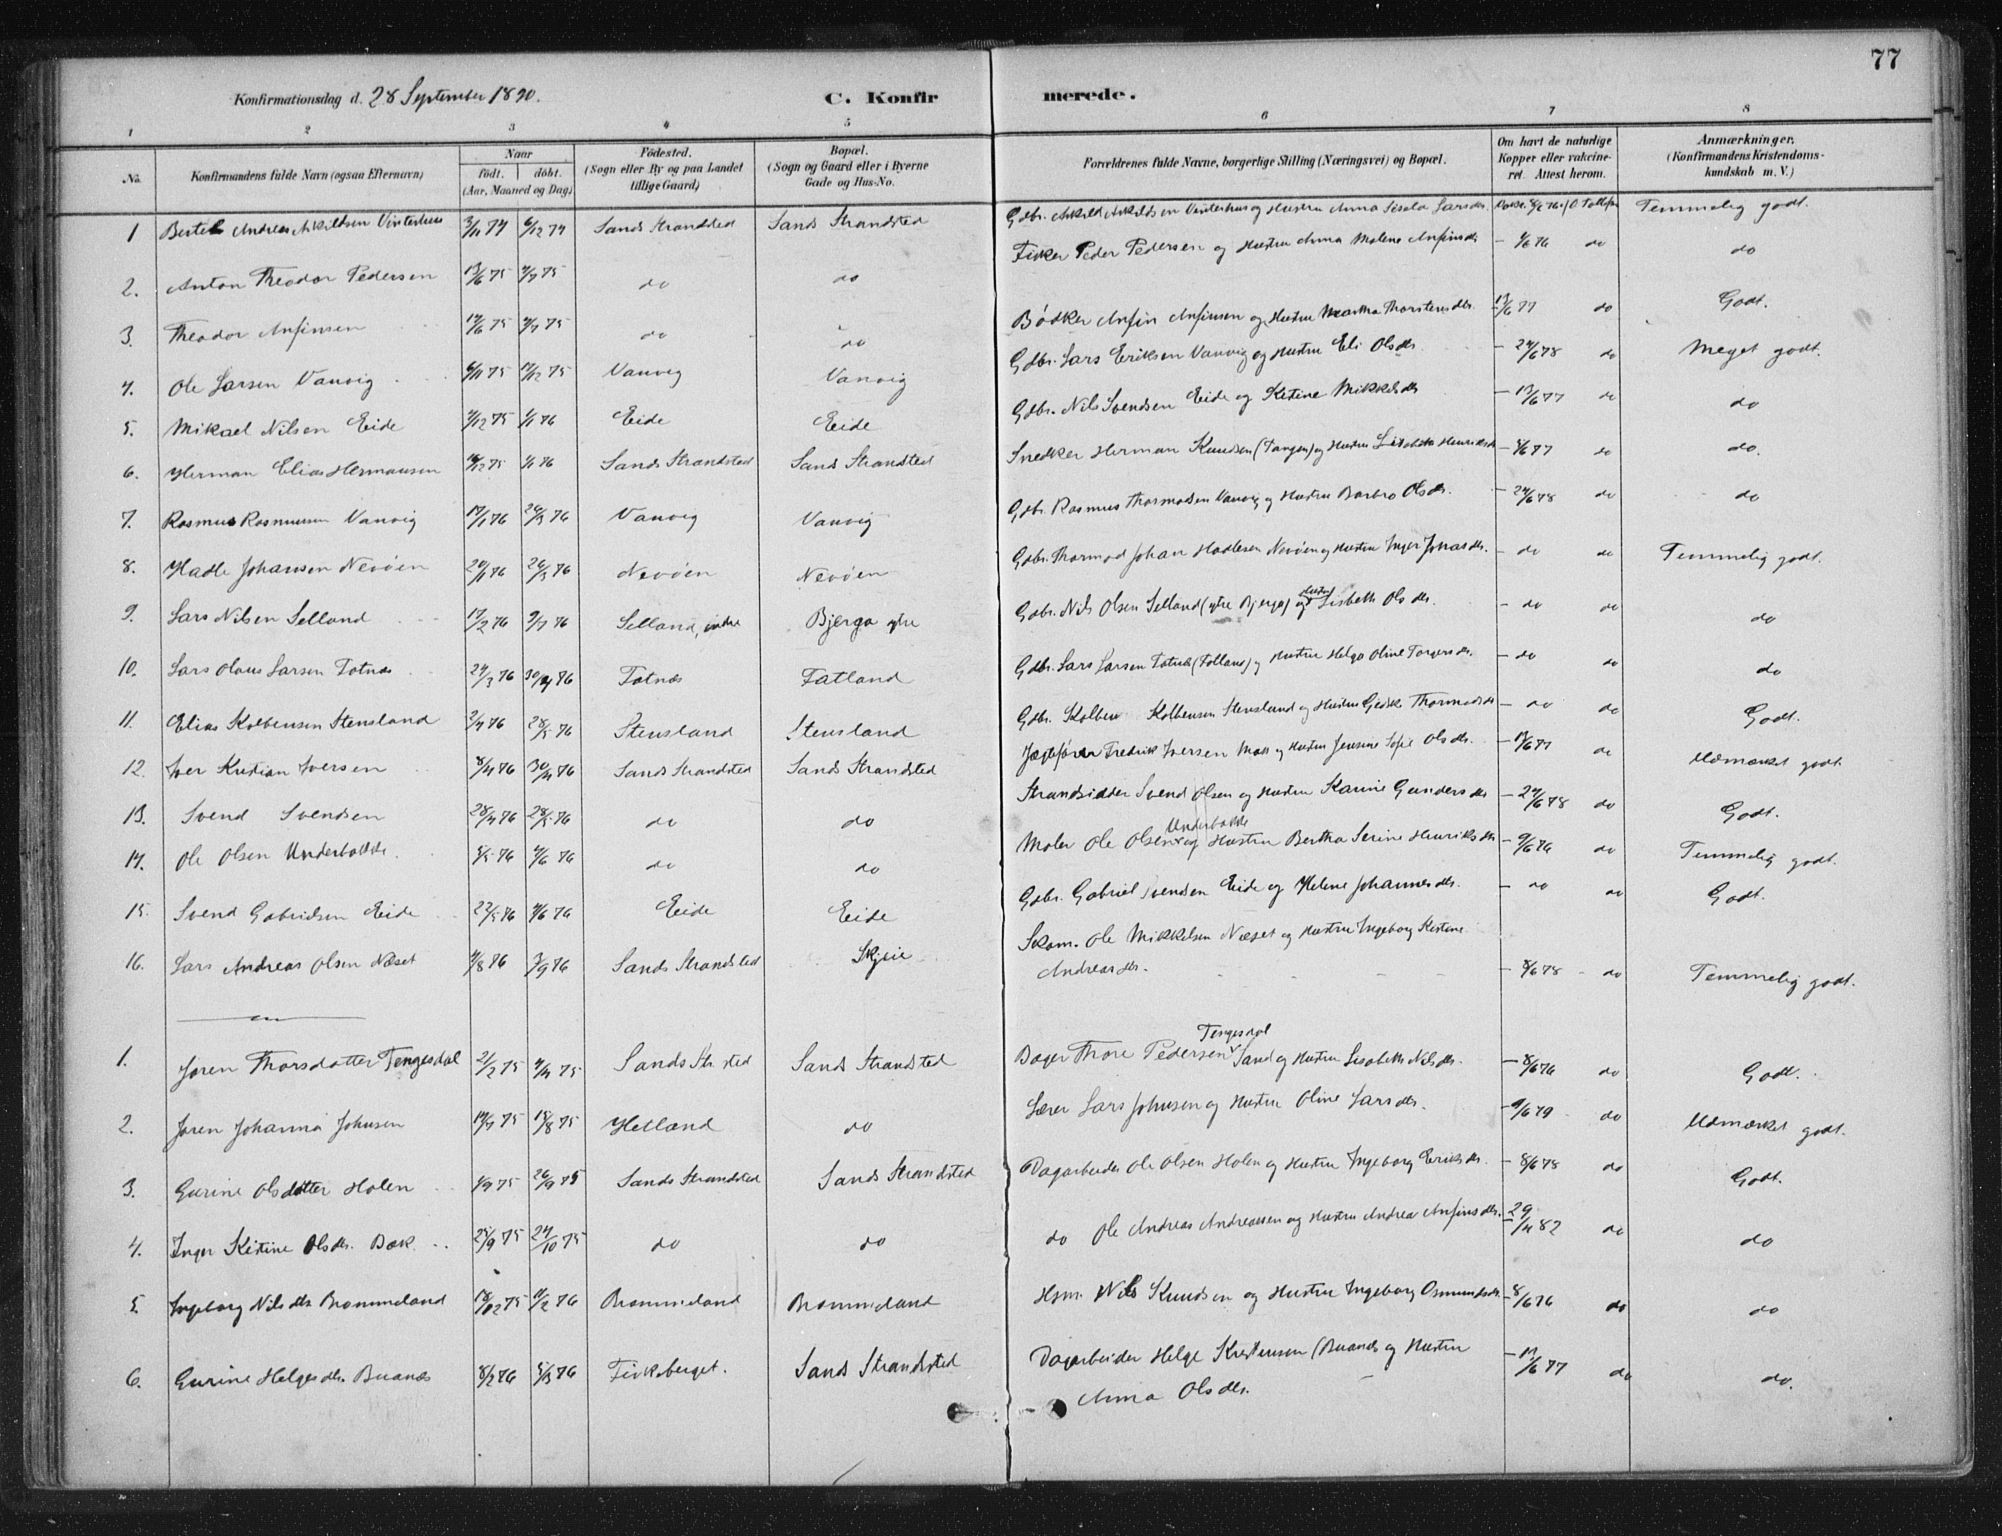 77
Konfirmationsdag d. 28 September 1890.
C. Konfirmerede.
1 2 3 4 5 6 7 8
No. Konfirmandens fulde Navn (ogsaa Efternavn) Naar født. døbt. (Aar, Maaned og Dag) Fødested. (Sogn eller By og paa Landet tillige Gaard) Bopæl. (Sogn og Gaard eller i Byerne Gade og Hus-No. Forældrenes fulde Navne, borgerlige Stilling (Næringsvei) og Bopæl. Om havt de naturlige Kopper eller vakcineret. Attest herom. Anmærkninger. (Konfirmandens Kristendomskundskab m. V.)
1 Bertel Andreas Askildsen Vinterhus 3/11 74 6/12 74 Sands Strandsted Sands Strandsted Gdbr. Askild Askildsen Vinterhus og Hustru Anna Larsdr. Temmelig godt.
2. Anton Theodor Pedersen 13/6 75 4/7 75 do do Fisker Peder Pedersen og Hustru Anna Malene Anfinsdr. - /6 76 do do
3. Theodor Anfinsen 14/6 75 4/7 75 do do Bødker Anfin Anfinsen og Hustru Martha Thorstensdr. 13/6 77 do Godt.
4. Ole Larsen Vanvig 6/11 75 12/12 75 Vanvig Vanvig Gdbr. Lars Eriksen Vanvig og Hustru Eli Olsdr. - 24/6 78 do Meget godt.
5. Mikael Nilsen Eide /12 75 1/1 76 Eide Eide Gdbr. Nils Svendsen Eide og Kristine Mikkelsdr - 13/6 77 do do
6. Herman Elias Hermansen 16/12 75 1/1 76 Sands Strandsted Sands Strandsted Snedker Herman Knudsen (Tangen) og Hustru Lisabeth Henriksdr - 8/6 77 do do.
7. Rasmus Rasmussen Vanvig 17/1 76 26/3 76 Vanvig Vanvig Gdbr. Rasmus Thormodsen Vanvig og Hustru Barbro Olsdr. - 24/6 78 do do
8. Hadle Johansen Nevøen 20/1 76 26/3 76 Nevøen Nevøen Gdbr. Thormod Johan Hadlesen Nevøen og Hustru Inger Jonasdr. - do do Temmelig godt.
9. Lars Nilsen Selland 17/2 76 9/7 76 Selland, indre Bjerga ytre Gdbr. Nils Olsen Selland (ytre Bjerga) og Hustru Lisbeth Olsdr. - do do do
10. Lars Olaus Larsen Fatnæs 24/3 76 30/4 76 Fatnæs Fatland Gdbr. Lars Larsen (Fatland) og Hustru Helga Oline Torgersdr. - do do do
11. Elias Kolbensen Stensland 2/4 76 28/5 76 Stensland Stensland Gdbr. Kolben Kolbensen Stensland og Hustru Thormodsdr - do do Godt.
12. Iver Kristian Iversen 8/4 76 30/4 76 Sands Strandsted Sands Strandsted Jægtefører Fredrik Iversen og Hustru Jensine Sofie Olsdr. - 17/6 77 do Udmærket godt.
13. Svend Svendsen 28/4 76 28/5 76 do do Strandsidder Svend Olsen og Hustru Karine Gundersdr - 24/6 78 do Godt.
14. Ole Olsen Underbakke. 5/5 76 4/6 76 do do Maler Ole Olsen Underbakke og Hustru Bertha Serine Henriksdr - 9/6 76 do Temmelig godt.
15. Svend Gabrielsen Eide 22/5 76 4/6 76 Eide Eide Gdbr. Gabriel Svendsen Eide og Helene Johannesdr. - do do Godt.
16. Lars Andreas Olsen Næset 4/8 76 3/9 76 Sands Strandsted Skjeie Skom. Ole Mikkelsen Næset og Hustru Ingeborg Kristine
Andreasdr. - 8/6 78 - do Temmelig godt.
1. Joren Thorsdatter Tengesdal 21/2 75 4/4 75 Sands Str.sted Sands Strandsted Bager Thore Pedersen Tengesdal Sand og Hustru Lisabeth Nilsdr. - 8/6 76 do Godt.
2. Joren Johanna Johnsen 14/7 75 15/8 75 Hetland do Lærer Lars Johnsen og Hustru Oline Larsdr. - 9/6 79 do Udmærket godt.
3. Gurine Olsdatter Holen 1/9 75 26/9 75 Sands Strandsted Sands Strandsted Dagarbeider Ole Olsen Holen og Hustru Ingeborg Eriksdr. - 8/6 78 do Godt.
4. Inger Kristine Olsdr. Bæk. 25/9 75 24/10 75 do do do Ole Andreas Andreassen og Hustru Andrea Anfinsdr. 29/4 82 do do
5. Ingeborg Nilsdr Brommeland 18/12 75 /2 76 Brommeland Brommeland Hsm. Nils Knudsen og Hustru Ingeborg Osmundsdr. - 8/6 76 do do
6. Gurine Helgesdr. Buanæs 8/2 76 5/3 76 Fiskeberget. Sands Strandsted Dagarbeider Helge Kristensen (Buanæs og Hustru
Anna Olsdr. - /6 77 do do.